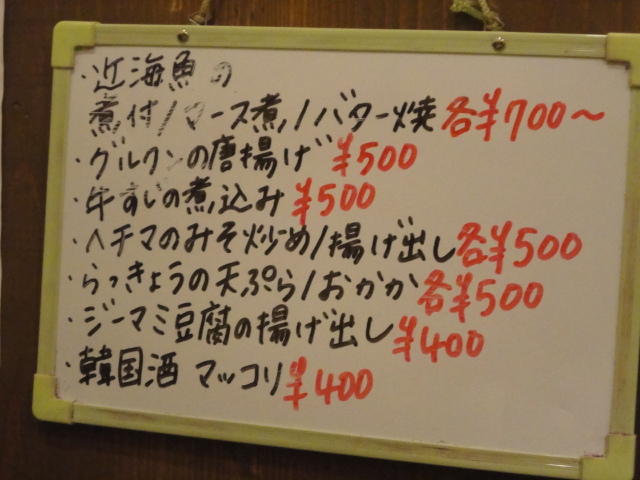 ・近海魚の
煮付/マース煮/バター焼 各¥700〜
・グルクンの唐揚げ ¥500
・牛すじの煮込み ¥500
・ヘチマのみそ炒め/揚げ出し各¥500
・らっきょうの天ぷら/おかか各¥500
・ジーマミ豆腐の揚げ出し¥400
・韓国酒 マッコリ¥400